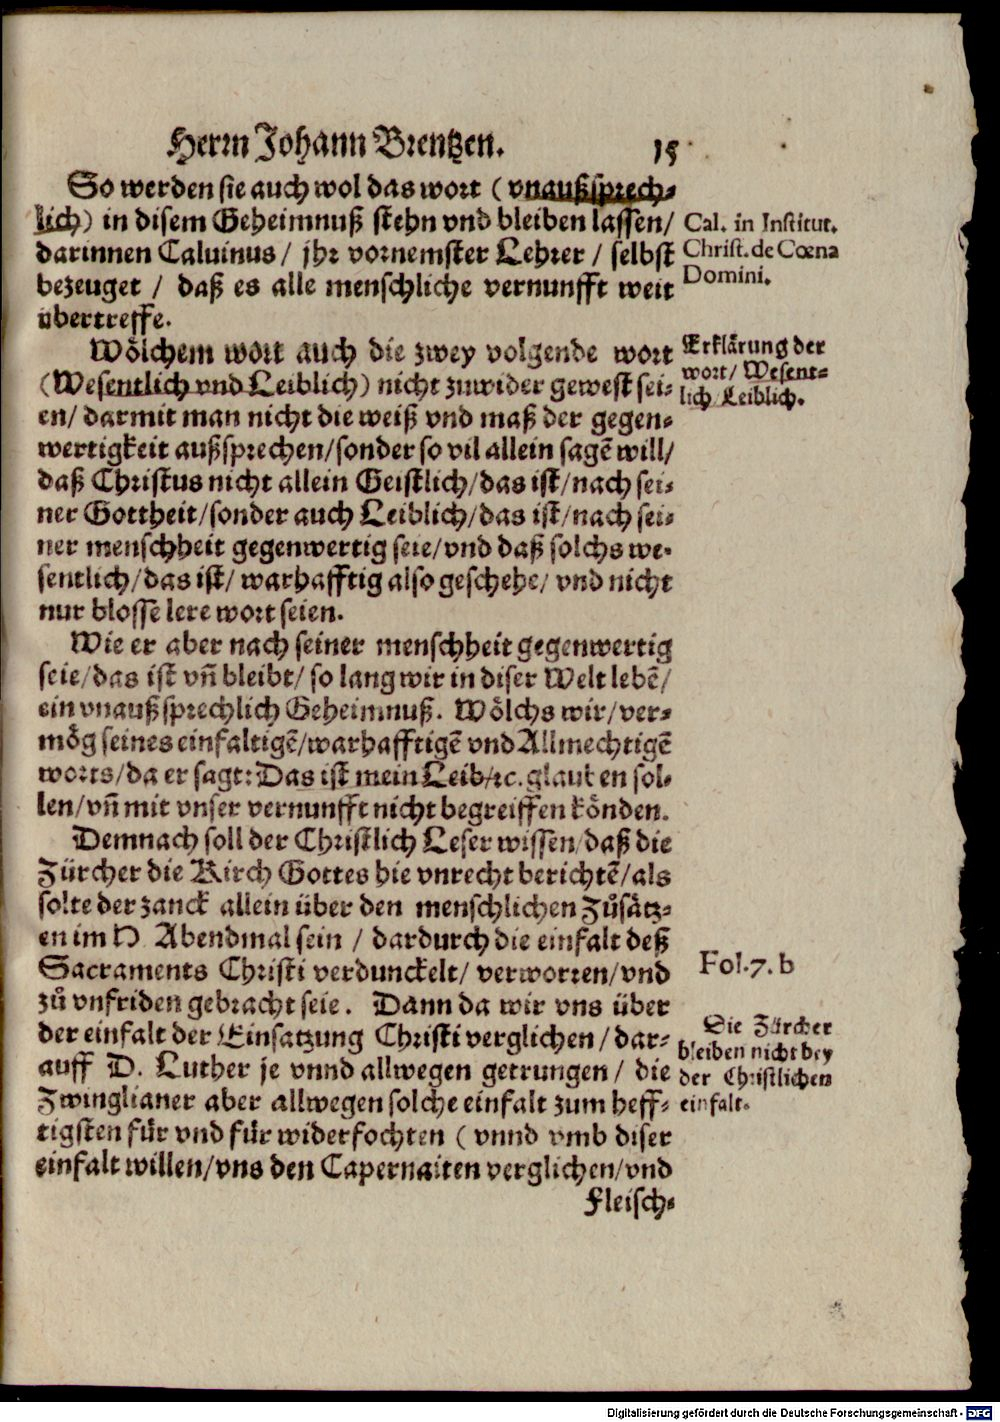 Herrn Johann Brentzen. 15
So werden sie auch wol das wort (vnaußsprech-
lich) in disem Geheimnuß stehn vnd bleiben lassen/
darinnen Caluinus / jhr vornemster Lehrer / selbst
bezeuget / daß es alle menschliche vernunfft weit
übertreffe.
Cal. in Institut.
Christ. de Cœna
Domini.
Wölchem wort auch die zwey volgende wort
(Wesentlich vnd Leiblich) nicht zuwider gewest sei-
en/ darmit man nicht die weiß vnd maß der gegen-
wertigkeit außsprechen/sonder so vil allein sagē will/
daß Christus nicht allein Geistlich/das ist/nach sei-
ner Gottheit/sonder auch Leiblich/das ist/nach sei-
ner menschheit gegenwertig seie/vnd daß solchs we-
sentlich/das ist/ warhafftig also geschehe/ vnd nicht
nur blosse lere wort seien.
Erklärung der
wort/ Wesent-
lich/ Leiblich.
Wie er aber nach seiner menschheit gegenwertig
seie/das ist vñ bleibt/ so lang wir in diser Welt lebē/
ein vnaußsprechlich Geheimnuß. Wölchs wir/ver-
mög seines einfaltigē/warhafftigē vnd Allmechtigē
worts/da er sagt: Das ist mein Leib/ꝛc. glauben sol-
len/vñ mit vnser vernunfft nicht begreiffen könden.
Demnach soll der Christlich Leser wissen/daß die
Zürcher die Kirch Gottes hie vnrecht berichtē/als
solte der zanck allein über den menschlichen Zůsätz-
en im H. Abendmal sein / dardurch die einfalt deß
Sacraments Christi verdunckelt/ verworren/vnd
zů vnfriden gebracht seie. Dann da wir vns über
der einfalt der Einsatzung Christi verglichen/ dar-
auff D. Luther je vnnd allwegen getrungen/ die
Zwinglianer aber allwegen solche einfalt zum heff-
tigsten für vnd für widerfochten (vnnd vmb diser
einfalt willen/vns den Capernaiten verglichen/vnd
Fol. 7. b
Die Zürcher
bleiben nicht bey
der Christlichen
einfalt.
Fleisch-
Digitalisierung gefördert durch die Deutsche Forschungsgemeinschaft - DFG